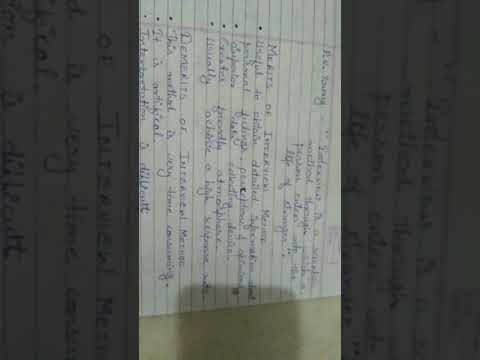 P.V. Young - "Interview is a
method through which a
person enters into the
life of stranger"
MERITS OF INTERVIEW METHOD
Useful to obtain detailed information about
personal feelings, perceptions & opinions
Superior data collecting device
Creates friendly atmosphere.
Usually achieve a high response rate
DEMERITS OF INTERVIEW METHOD
This method is very time consuming.
It is artificial
Intertortation is difficult